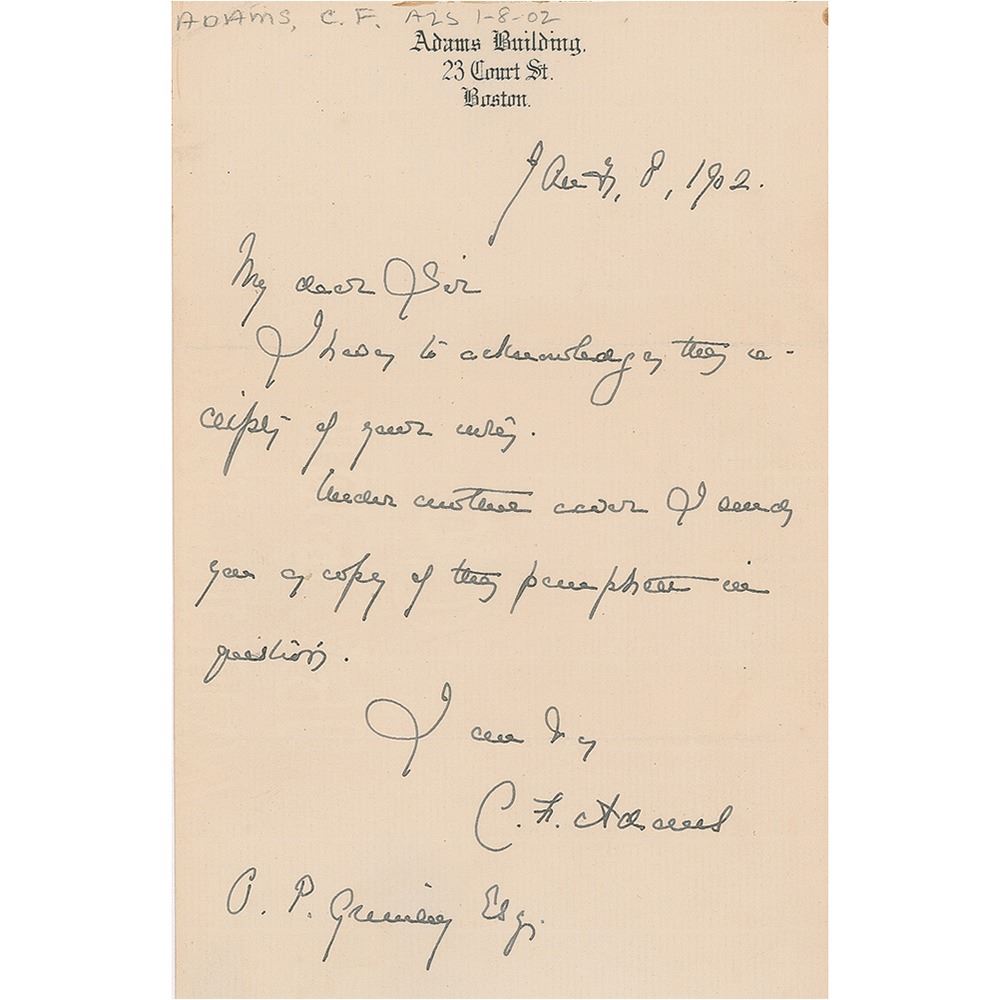 ADAMS, C. F. ALS 1-8-02
Adams Building,
23 Court St.
Boston.
8, 1902.
My dear Sir
I have to acknowledge the re-
ceipt of your note.
Under another cover I send
you a copy of the pamphlet in
question.
I am
C. F. Adams
P. Esq.